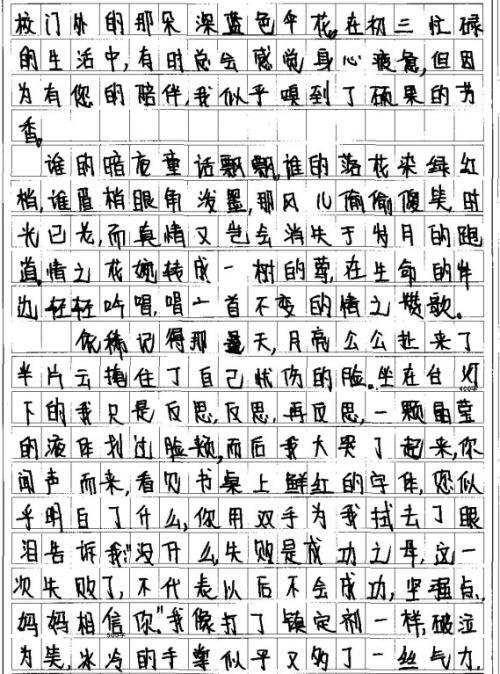 校门外的那朵深蓝色伞花。在初三忙碌
的生活中,有时总会感觉身心疲惫,但因
为有您的陪伴,我似乎嗅到了硕果的芳
香。
谁的暗夜童话飘飘,谁的落花染绿红
梢,谁眉梢眼角泼墨,那风儿偷偷傻笑,时
光已老,而真情又岂会消失于岁月的跑
道,情之花婉转成一树的尊,在生命的岸
边轻轻吟唱,唱一首不变的情之赞歌。
依稀记得那是天,月亮公公赴来了
半片云掩住了自己忧伤的脸。坐在台灯
下的我只是反思,反思,再反思,一颗晶莹
的液体划过脸颊,而后我大哭了起来,你
闻声而来,看见书桌上鲜红的字体,您似
乎明白了什么,你用双手为我拭去了眼
泪告诉我:"没什么,失败是成功之母,这一
次失败了,不代表以后不会成功,坚强点,
妈妈相信你"我像打了镇定剂一样,破泣
为笑,冰冷的手掌似乎又多了一丝气力,